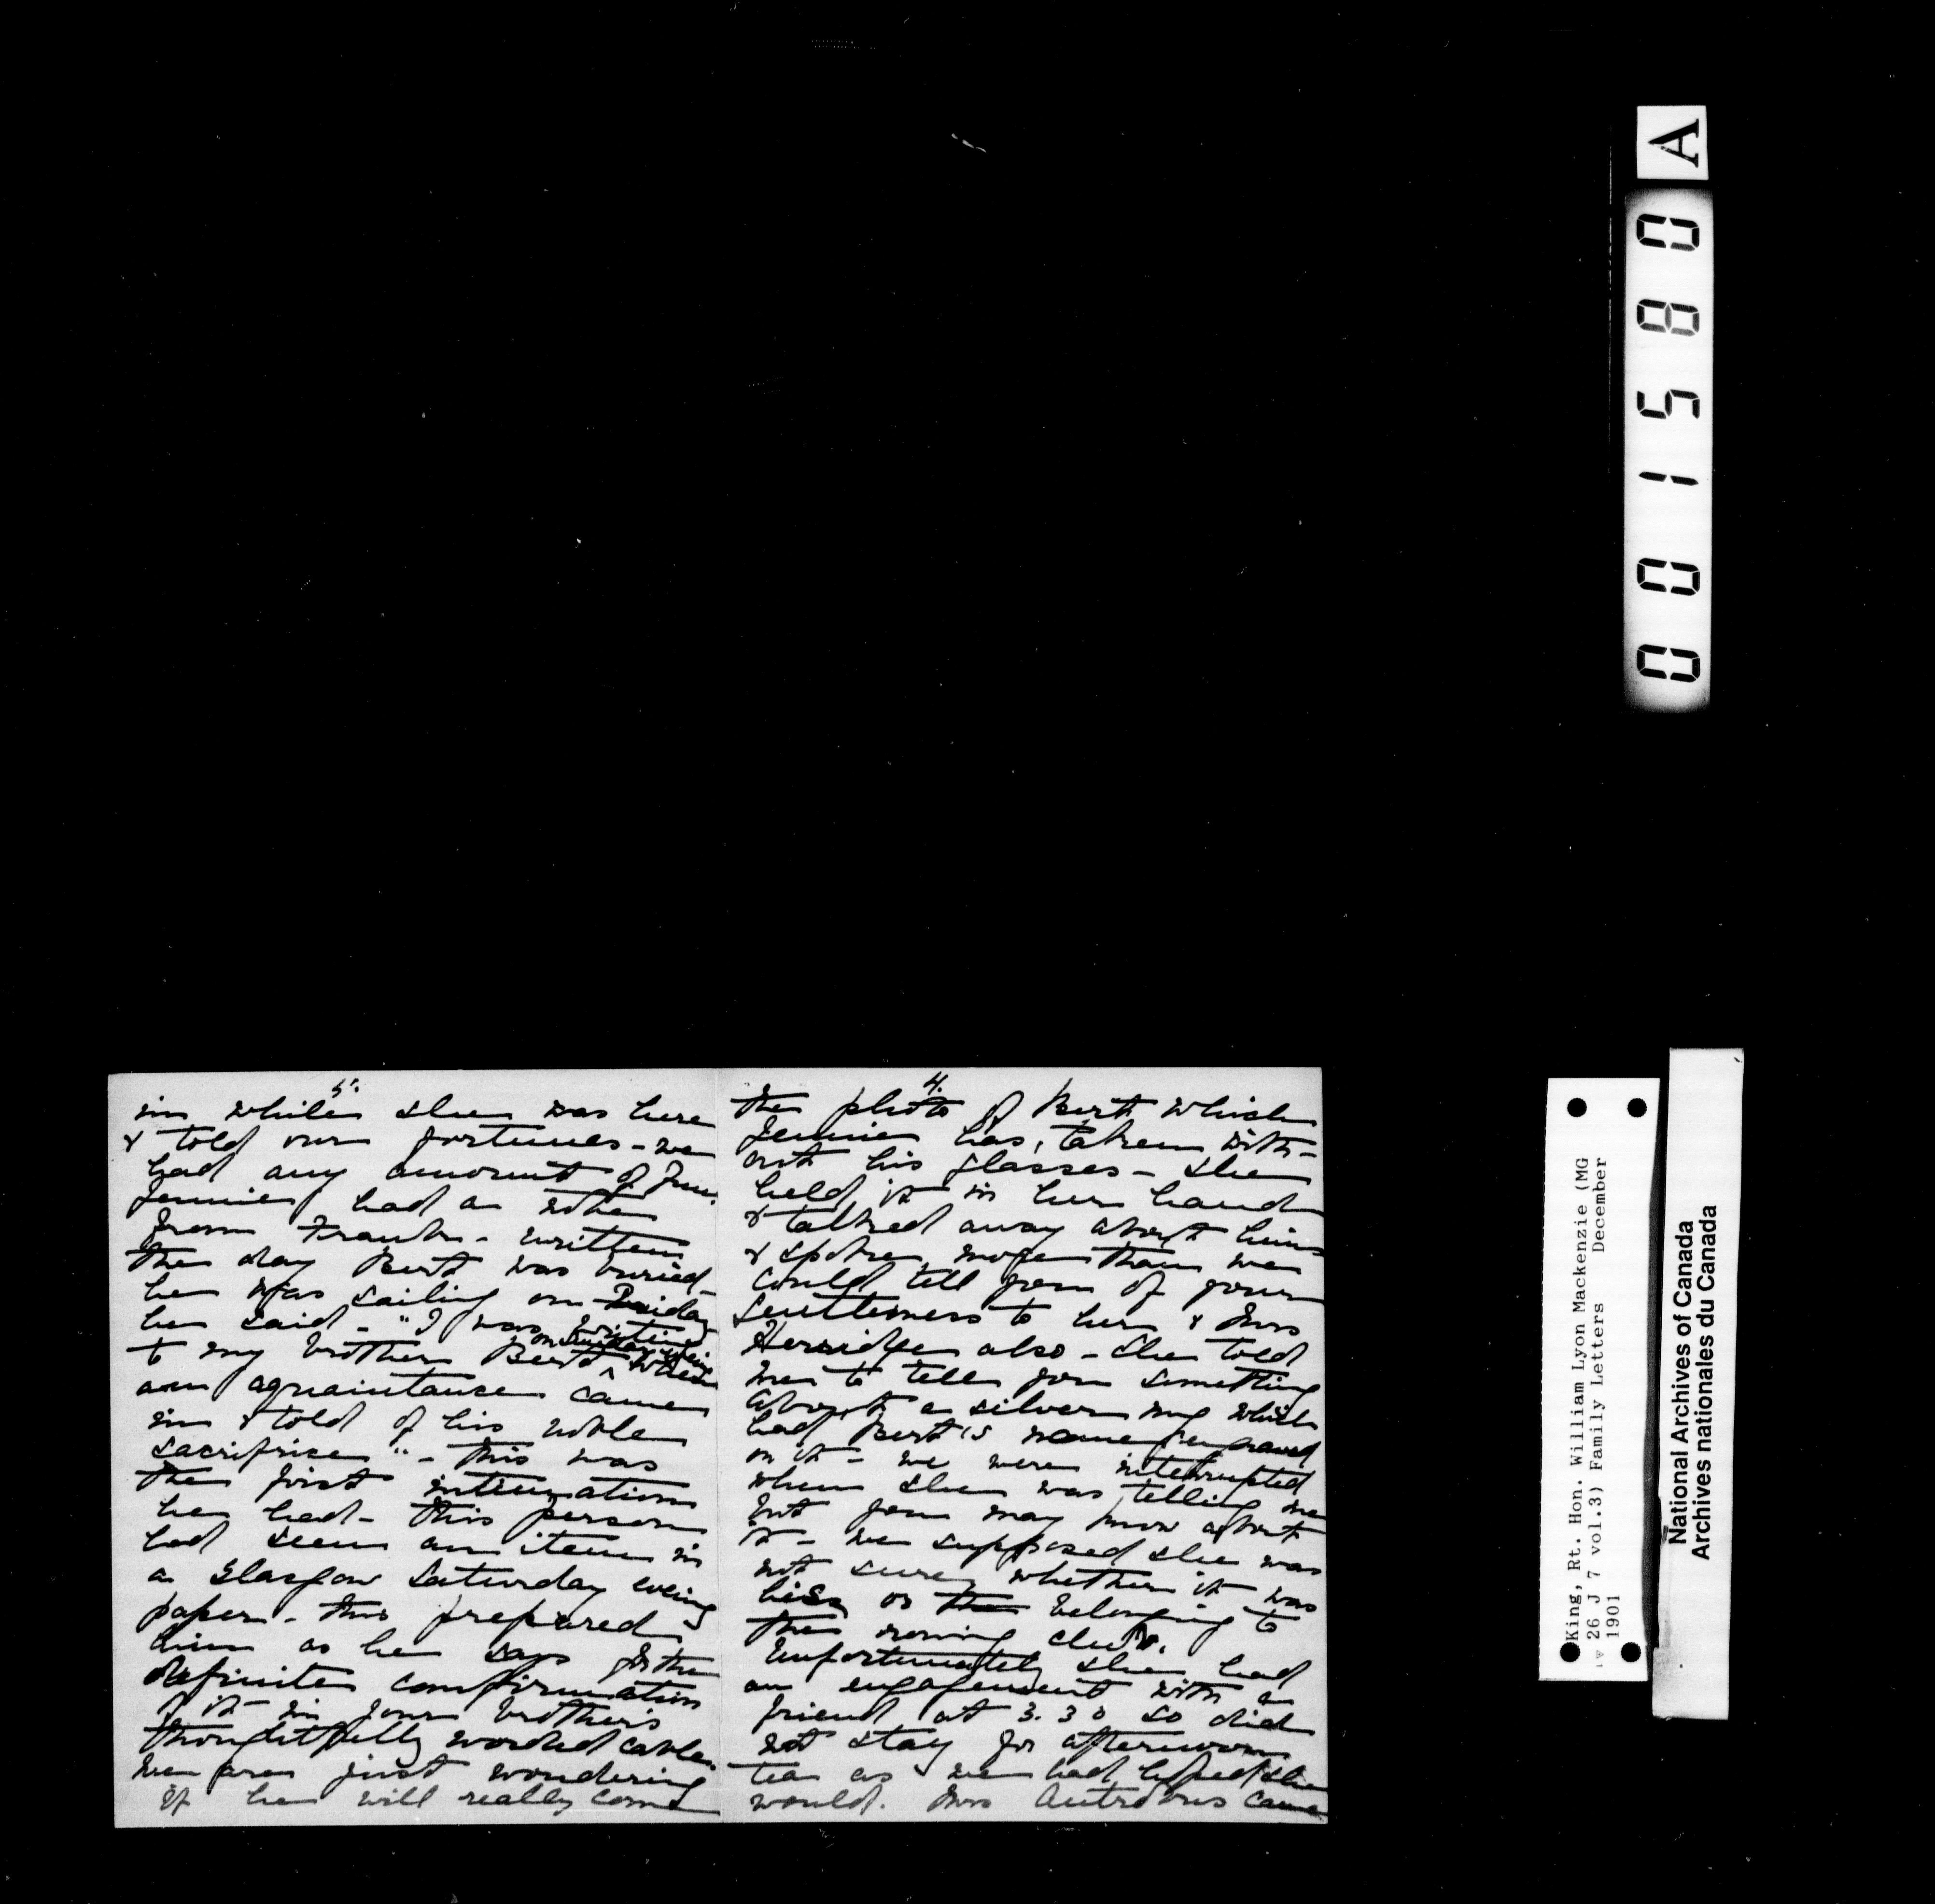 4.
the photo of Bert which
Jennie has, taken with-
out his glasses - she
held it in her hand
& talked away about him
& spoke more than we
could tell you of your
gentleness to her & Mrs
Herridge also - she told
me to tell you something
about a silver mug which
had Bert's name engraved
on it - we were interrupted
when she was telling me
but you may know about
it - we supposed she was
not sure whether it was
his or the belonging to
the rowing club.
Unfortunately she had
an engagement with a
friend at 3.30 so did
not stay for afternoon
tea as we had hoped she
would. Mrs Antrobus came
5.
in while she was here
& told our fortunes - we
had any amount of fun.
Jennie had a note
from Frank - written
the day Bert was buried -
he was sailing on Friday
he said - "I was writing
on Sunday evening
to my brother Bert when
an aquaintance came
in & told of his noble
sacrifice" - this was
the first intimation
he had - this person
had seen an item in
a Glasgow Saturday evening
paper - this prepared
him as he says for the
definite confirmation
of it in your brother's
thoughtfully worded cable.
We are just wondering
if he will really come
A
001580
King, Rt. Hon. William Lyon Mackenzie (MG
26 J 7 vol.3) Family Letters December
1901
National Archives of Canada
Archives nationales du Canada